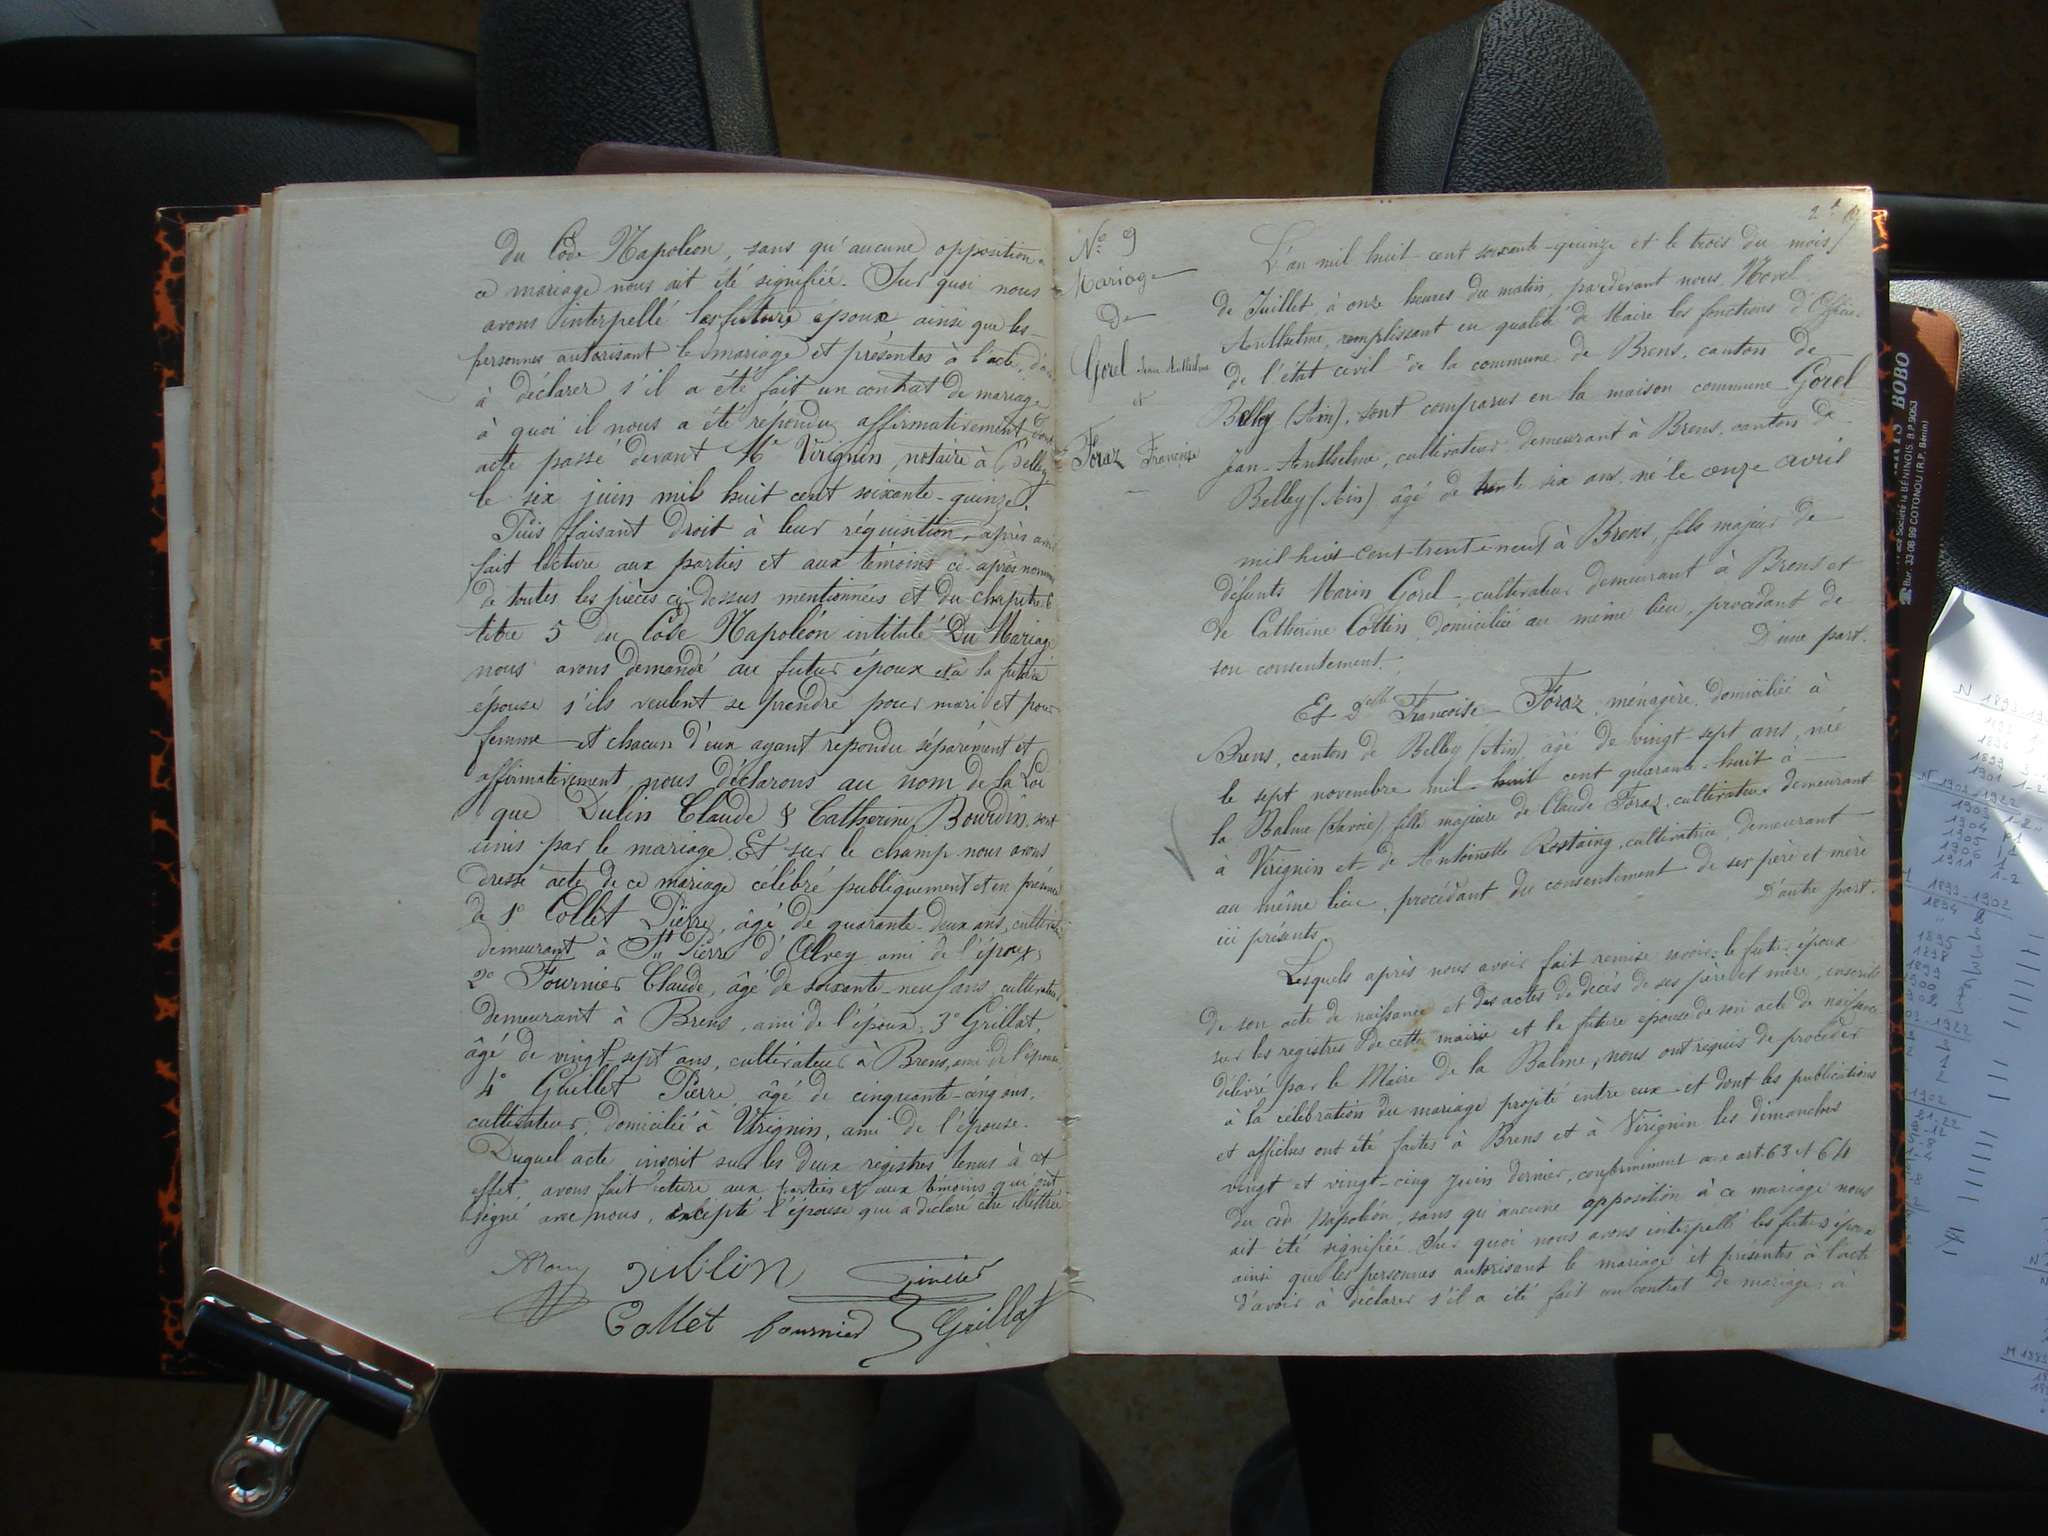 du Code Napoléon, sans qu'aucune opposition à
ce mariage nous ait été signifiée. Sur quoi nous
avons interpellé les futurs époux ainsi que les
personnes autorisant le mariage et présentes à l'acte, d'avoir
à déclarer s'il a été fait un contrat de mariage
à quoi il nous a été répondu affirmativement, dont
acte passé devant Me Virignin, notaire à Belley
le six juin mil huit cent soixante-quinze.
Puis faisant droit à leur réquisition, après avoir
fait lecture aux parties et aux témoins ci-après nommés
de toutes les pièces ci-dessus mentionnées et du chapitre 6
titre 5 du Code Napoléon intitulé Du Mariage
nous avons demandé au futur époux et à la future
épouse s'ils veulent se prendre pour mari et pour
femme et chacun d'eux ayant répondu séparément et
affirmativement, nous déclarons au nom de la Loi
que Dulin Claude & Catherine Bourdin, sont
unis par le mariage. Et sur le champ nous avons
dressé acte de ce mariage célébré publiquement et en présence
de 1° Collet Pierre, âgé de quarante-deux ans, cultivateur
demeurant à St Pierre d'Alvey ami de l'époux;
2° Fournier Claude, âgé de soixante-neuf ans, cultivateur
demeurant à Brens, ami de l'époux; 3° Grillat,
âgé de vingt-sept ans, cultivateur à Brens, ami de l'épouse
4° Guillet Pierre âgé de cinquante-cinq ans,
cultivateur, domicilié à Virignin, ami de l'épouse.
Duquel acte inscrit sur les deux registres tenus à cet
effet, avons fait lecture aux parties et aux témoins qui ont
signé avec nous, excepté l'épouse qui a déclaré être illettrée
Dublin
Collet fournier Grillat
N° 9
Mariage
De
Gorel Jean Anthelme
et
Foraz Françoise
L'an mil huit-cent soixante-quinze et le trois du mois
de Juillet, à onze heures du matin, pardevant nous, Morel
Anthelme, remplissant en qualité de Maire les fonctions d'Officier
de l'état civil de la commune de Brens, canton de
Belley (Ain), sont comparus en la maison commune Gorel
Jean-Anthelme, cultivateur, demeurant à Brens, canton de
Belley (Ain) âgé de trente six ans, né le onze avril
mil huit-cent-trente-neuf à Brens, fils majeur de
défunts Marin Gorel, cultivateur demeurant à Brens et
de Catherine Cottin, domiciliée au même lieu, procédant de
son consentement. D'une part.
Et Delle Françoise Foraz, ménagère, domiciliée à
Brens, canton de Belley (Ain) âgé de vingt-sept ans, née
le sept novembre mil huit cent quarante-huit à
la Balme (Savoie) fille majeure de Claude Foraz, cultivateur demeurant
à Virignin et de Antoinette Rostaing, cultivatrice, demeurant
au même lieu, procédant du consentement de ses père et mère
ici présents D'autre part.
Lesquels après nous avoir fait remise savoir: le futur époux
de son acte de naissance et des actes de décès de ses père et mère, inscrits
sur les registres de cette mairie et la future épouse de son acte de naissance
délivré par le Maire de la Balme, nous ont requis de procéder
à la célébration du mariage projeté entre eux et dont les publications
et affiches ont été faites à Brens et à Virignin les dimanches
vingt et vingt-cinq juin dernier, conformément aux art. 63 et 64
du code Napoléon, sans qu'aucune opposition à ce mariage nous
ait été signifiée. Sur quoi nous avons interpellé les futurs époux
ainsi que les personnes autorisant le mariage et présentes à l'acte
d'avoir à déclarer s'il a été fait un contrat de mariage; à
BOBO
COTONOU (R.P. Bénin)